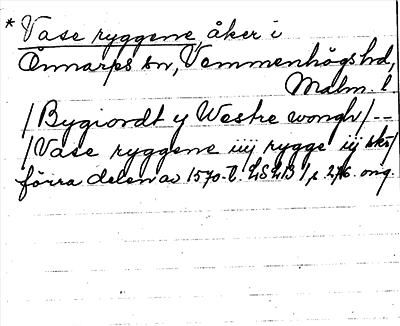 * Vase ryggene åker i
Önnarps sn, Vemmenhögs hd,
Malm. l.
/Bygiordt y Westre wongh/ --
/Vase ryggene iiij rygge iij skr/
förra delen av 1570-t. LSLB 1, s. 276. orig.